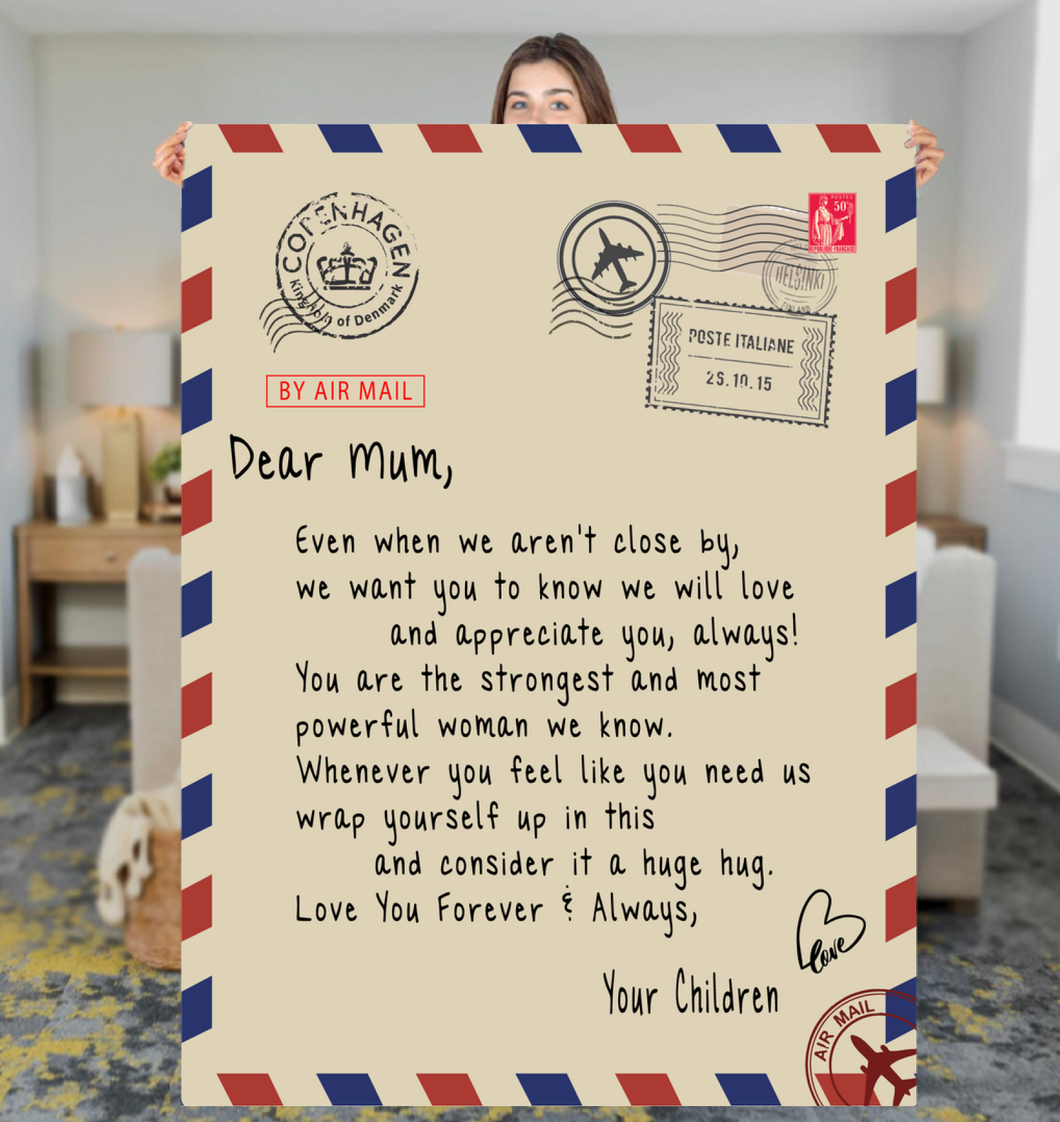 COPENHAGEN
Kingdom of Denmark
POSTES
50c
REPUBLIQUE FRANCAISE
HELSINKI
FINLAND
POSTE ITALIANE
26.10.15
BY AIR MAIL
Dear Mum,
Even when we aren't close by,
we want you to know we will love
and appreciate you, always!
You are the strongest and most
powerful woman we know.
Whenever you feel like you need us
wrap yourself up in this
and consider it a huge hug.
Love You Forever & Always,
love
Your Children
AIR MAIL